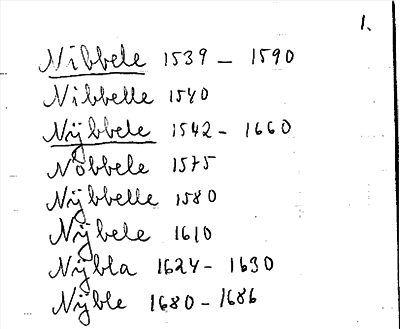 1.
Nibbele 1539 – 1590
Nibbelle 1540
Nÿbbele 1542 – 1660
Nobbele 1575
Nÿbbelle 1580
Nÿbele 1610
Nÿbla 1624 – 1630
Nÿble 1680 – 1686